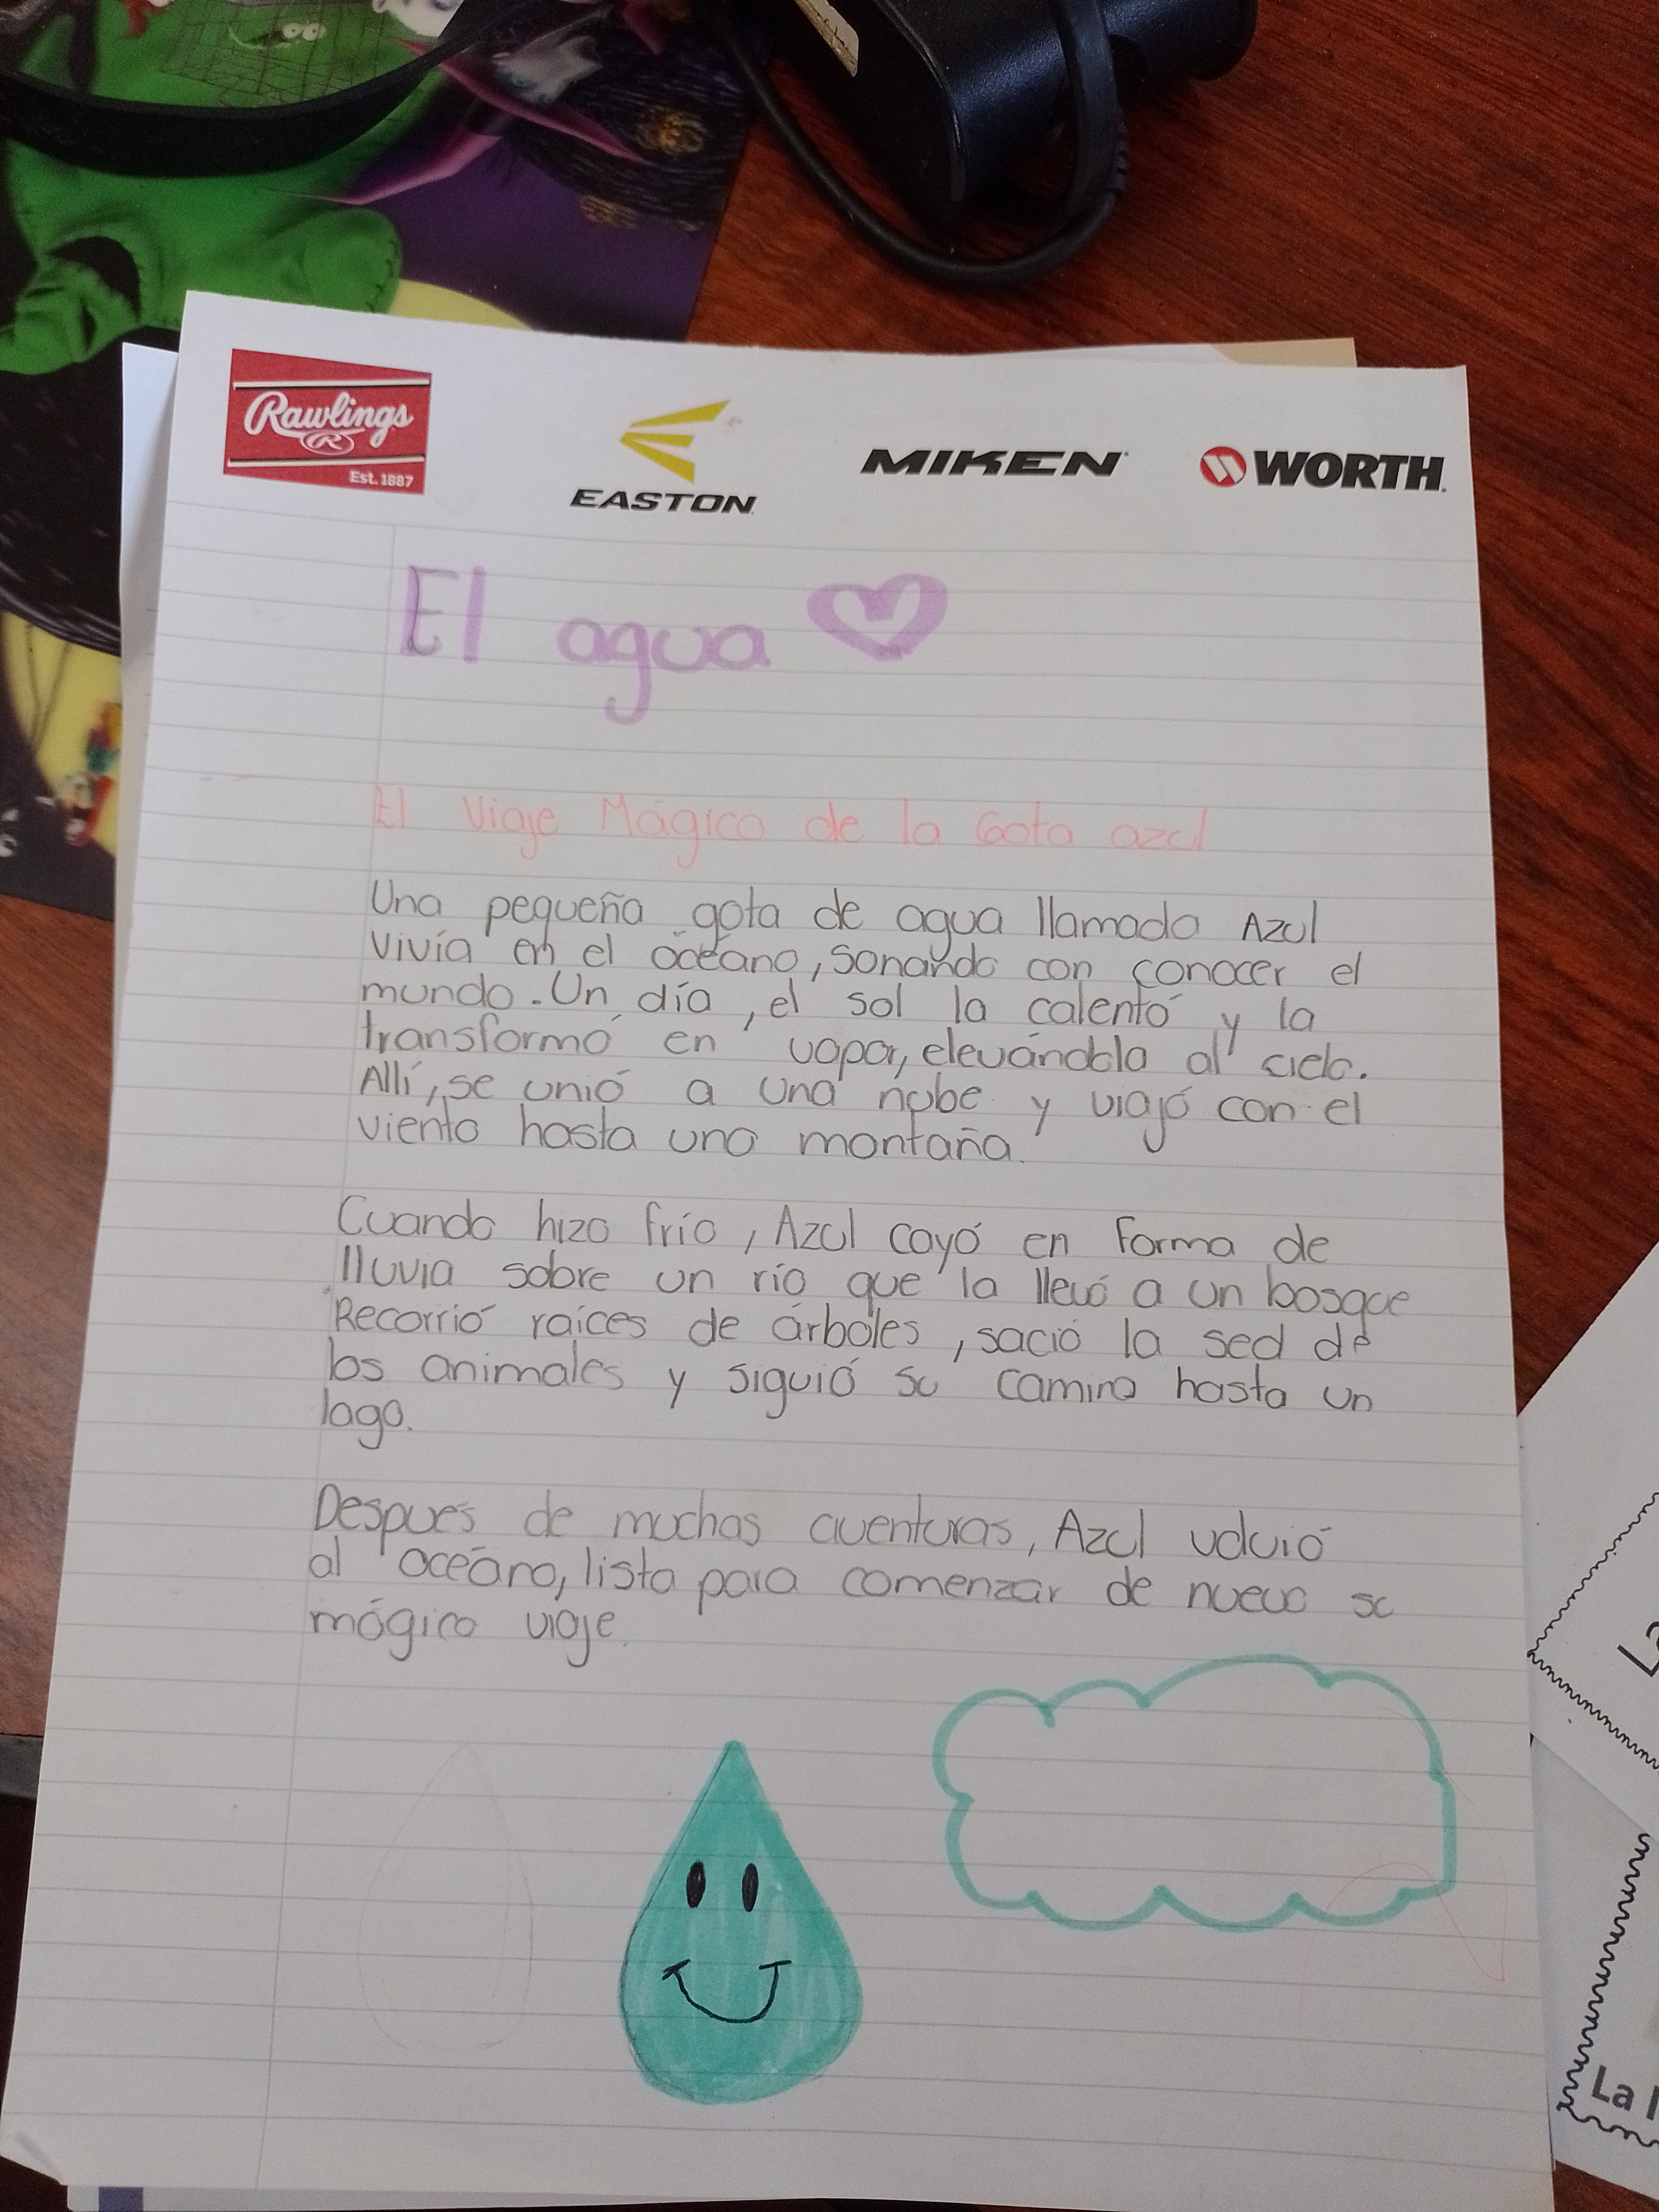 Rawlings
R
Est. 1887
EASTON
MIKEN
WORTH
El agua
El Viaje Mágico de la Gota azul
Una pequeña gota de agua llamada Azul
vivía en el océano, sonando con conocer el
mundo. Un día, el sol la calentó y la
transformó en vapor, elevándola al cielo.
Allí, se unió a una nube y viajó con el
viento hasta una montaña.
Cuando hizo frío, Azul cayó en forma de
lluvia sobre un río que la llevó a un bosque
Recorrió raíces de árboles, sació la sed de
los animales y siguió su camino hasta un
lago.
Después de muchas aventuras, Azul volvió
al océano, lista para comenzar de nuevo su
mágico viaje.
La